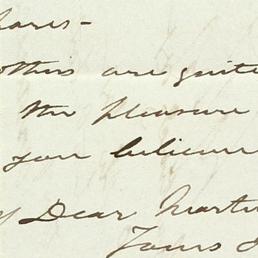 others are quite
the pleasure
you believe
Dear Martin
Yours